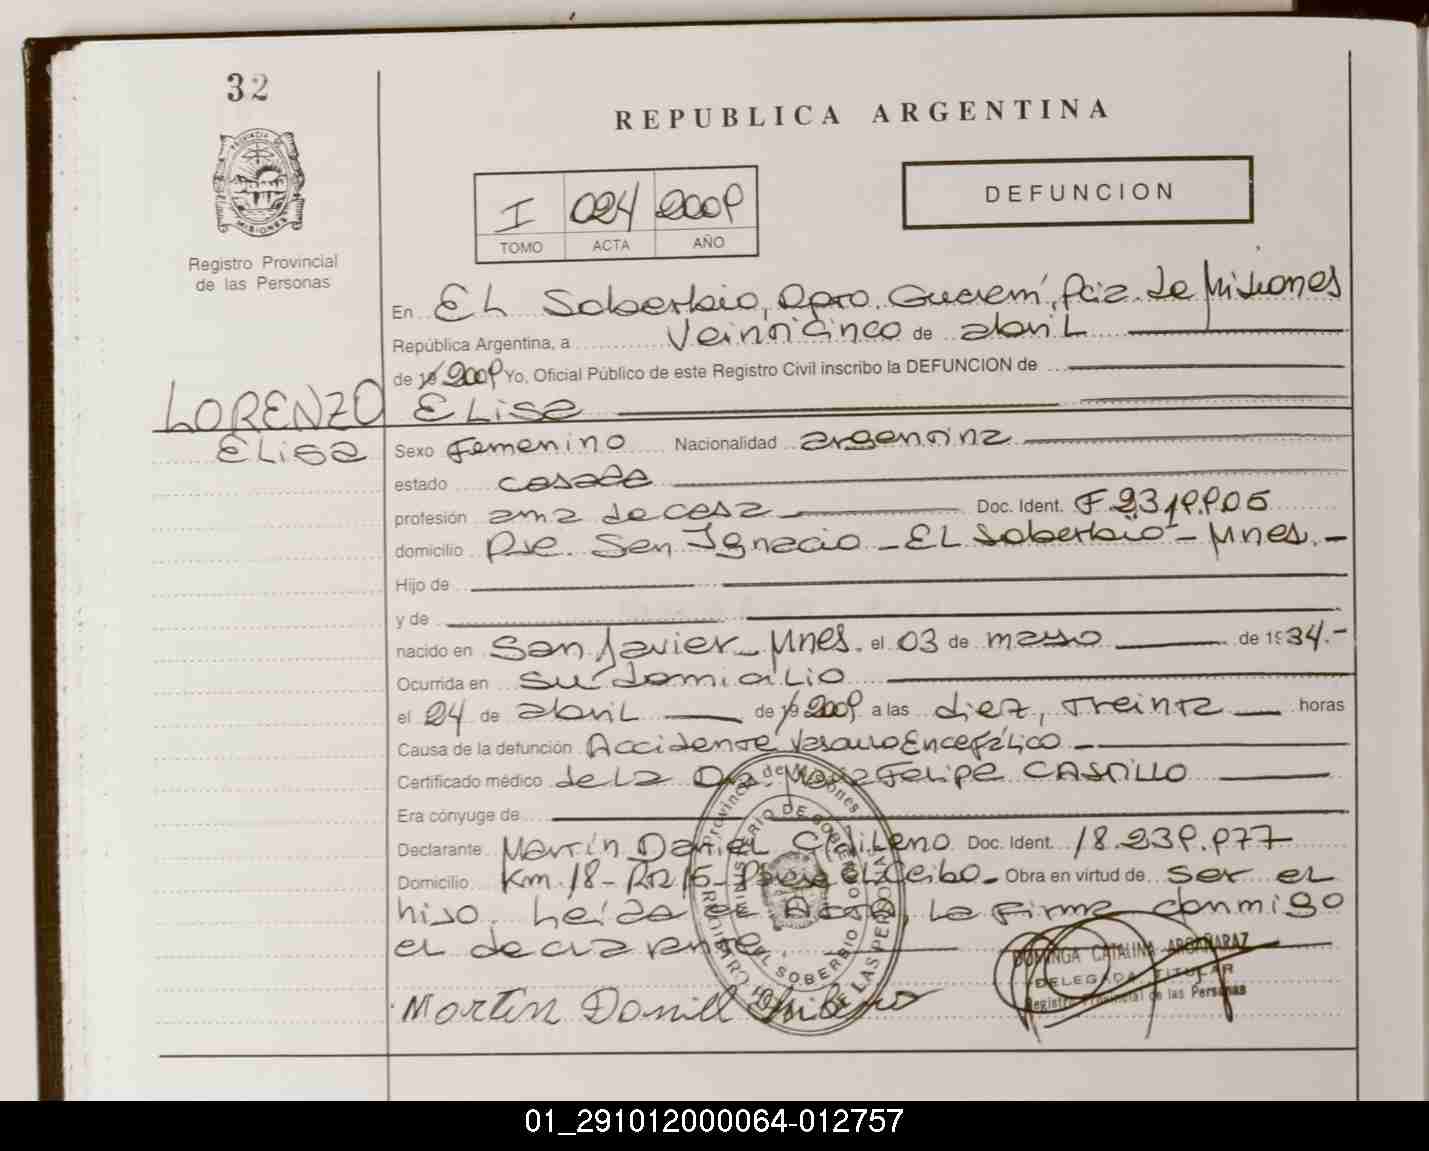 32
REPUBLICA ARGENTINA
PROVINCIA DE MISIONES
Registro Provincial
de las Personas
I 024 2009
TOMO ACTA AÑO
DEFUNCION
En EL Soberbio, Dpto. Guaraní, Pcia. de Misiones
República Argentina, a Veinticinco de abril
de 19 2009 Yo, Oficial Público de este Registro Civil inscribo la DEFUNCION de
LORENZO ELisa
ELisa
Sexo Femenino Nacionalidad argentina
estado casada
profesión ama de casa Doc. Ident. F
domicilio Pje. San Ignacio - EL Soberbio - Mnes. -
Hijo de
y de
nacido en San Javier - Mnes. el 03 de marzo de 1934.-
Ocurrida en su domicilio
el 24 de abril de 19 2009 a las diez, treinta horas
Causa de la defunción Accidente Vascular Encefálico -
Certificado médico de La Dra. Felipa CASTILLO
Era cónyuge de
Declarante Martín Daniel Doc. Ident. 18.239.977
Domicilio Km. 18 - Paraje el Ceibo - Obra en virtud de ser el
hijo. Leída el Acta, La firma conmigo
el declarante.
Martin Daniel
Provincia de Misiones
MINISTERIO DE GOBIERNO
EL SOBERBIO
REGISTRO DE LAS PERSONAS
DOMINGA CATALINA ARGAÑARAZ
DELEGADA TITULAR
Registro Provincial de las Personas
01_291012000064-012757